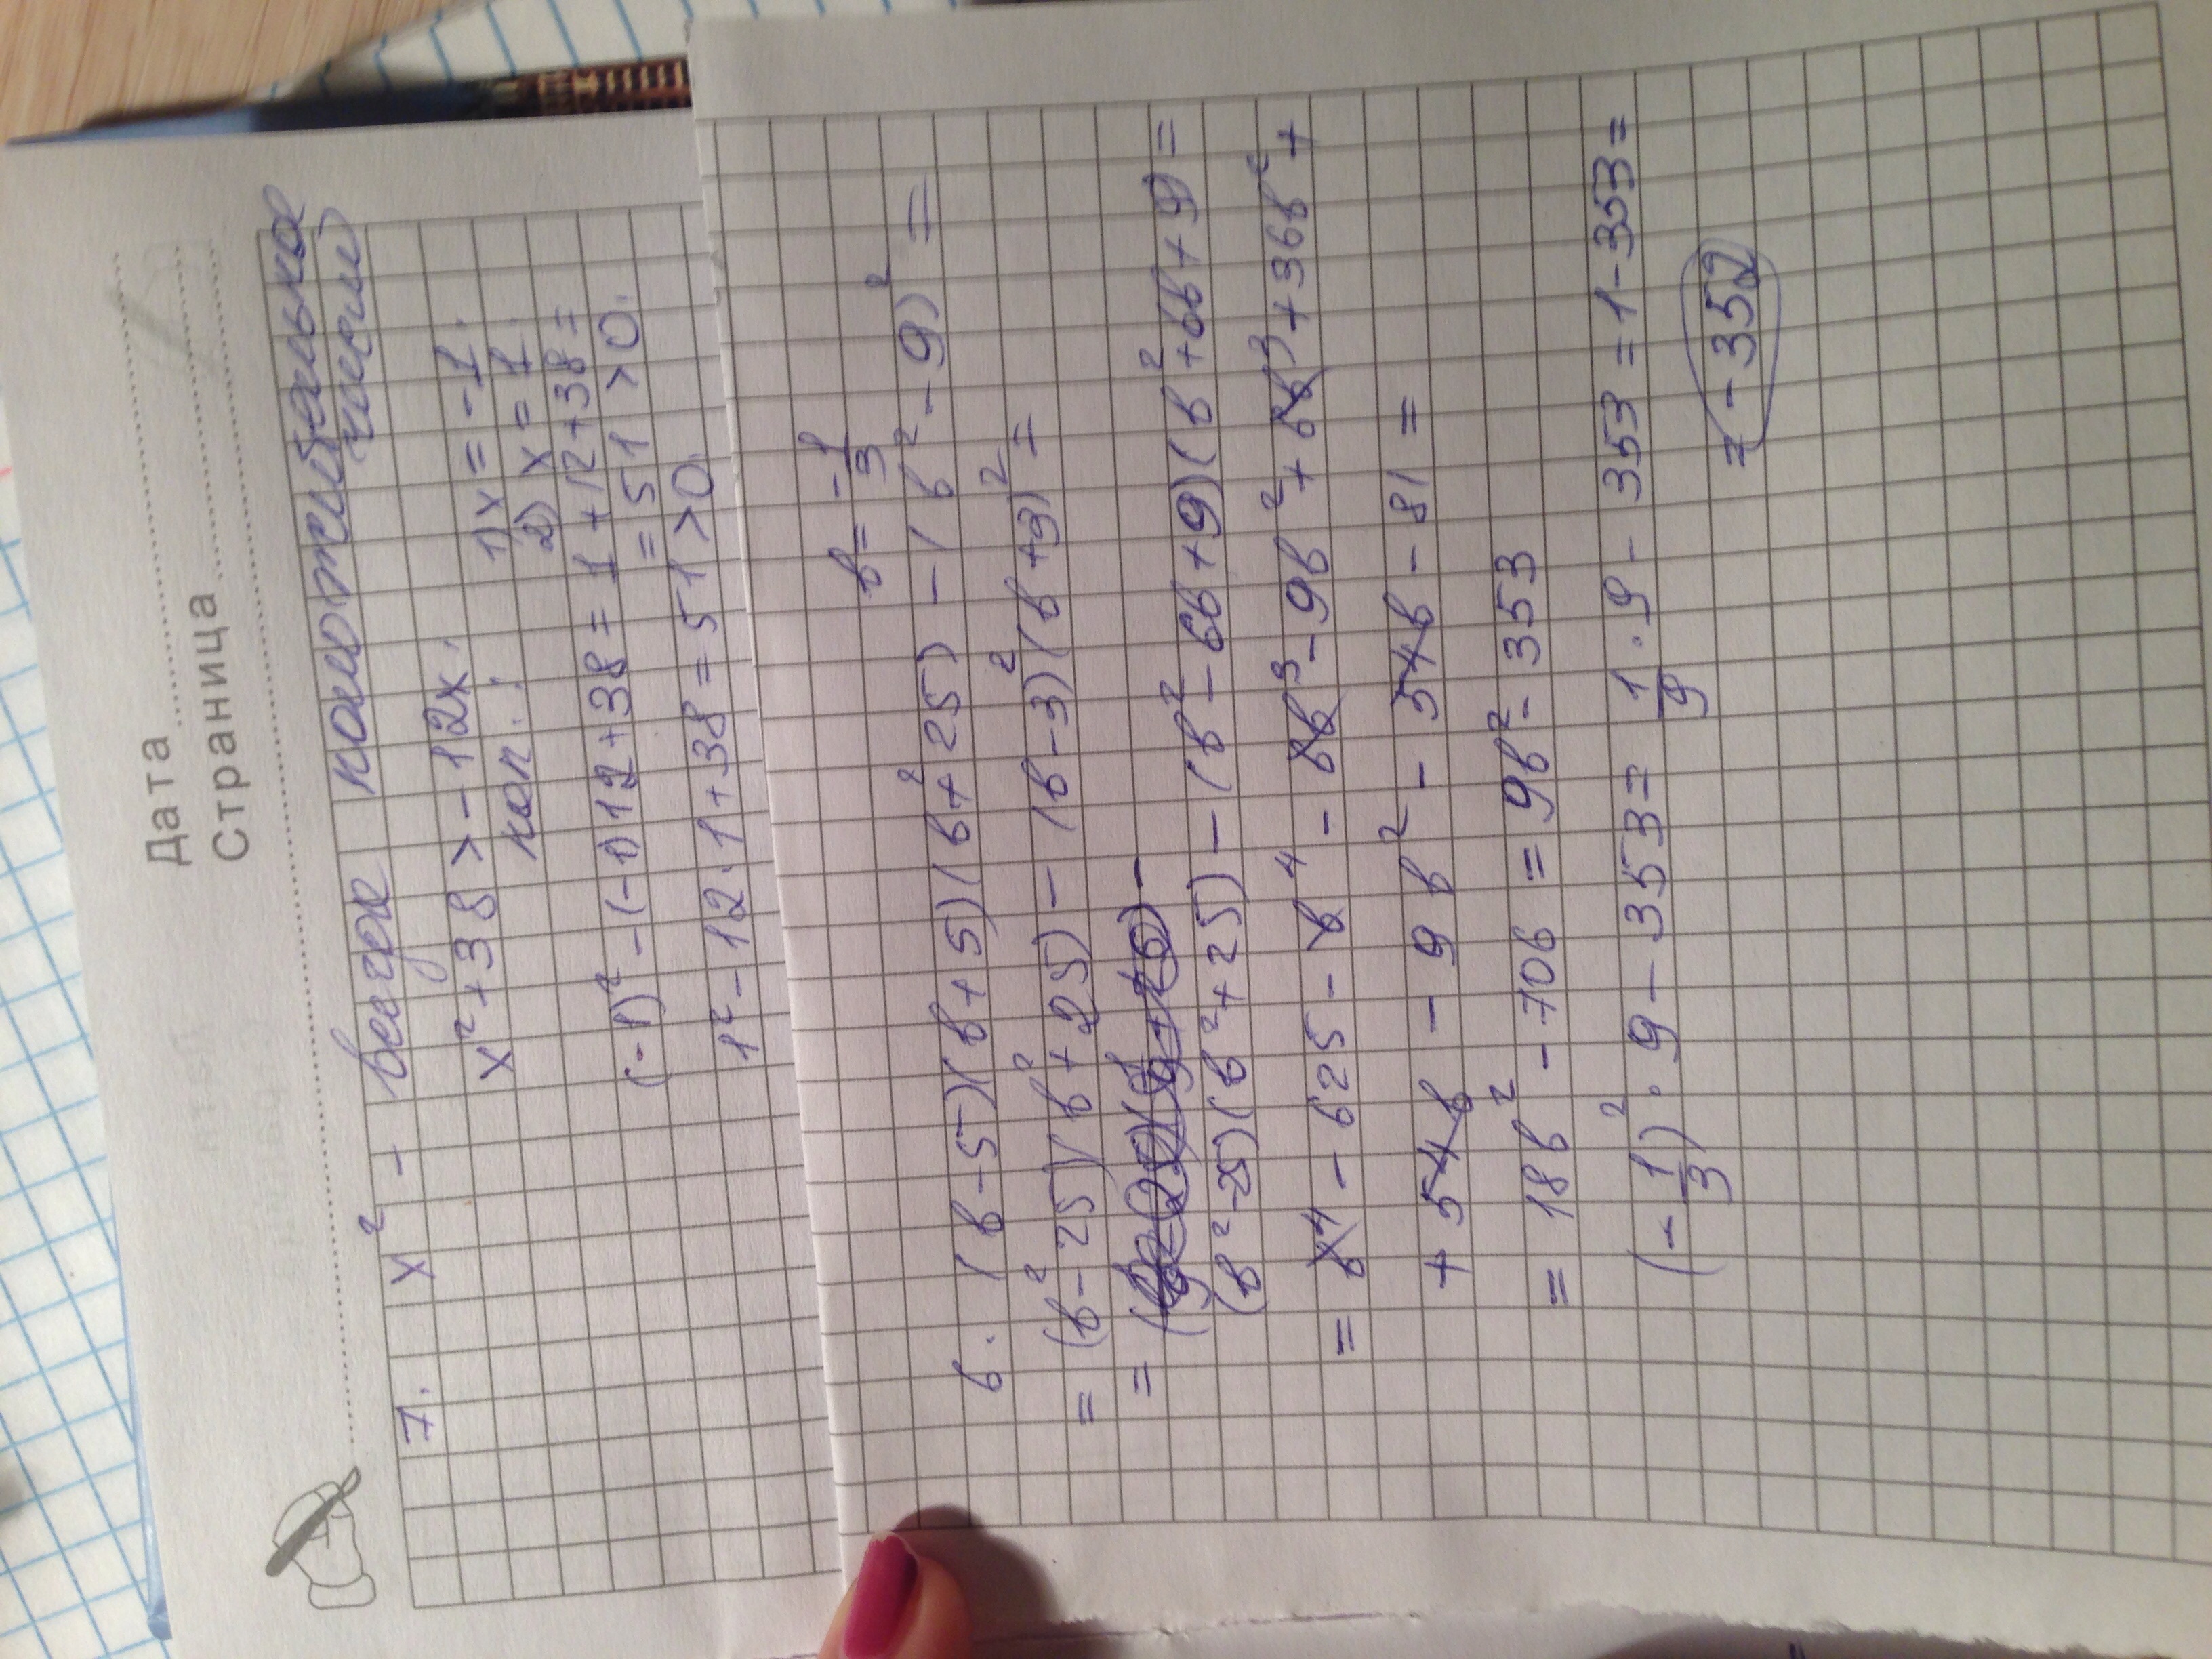 Дата
Страница
7. x² - всегда положительное
число
x² + 38 > -12x.
1) x = -1.
2) x = 1.
(-1)² - (-1) 12 + 38 = 1 + 12 + 38 =
= 51 > 0.
1² - 12 · 1 + 38 = 51 > 0.
в = -1/3
6. (в-5)(в+5)(в²+25) - (в²-9)² =
= (в²-25)(в²+25) - (в-3)²(в+3)² =
=
(в²-25)(в²+25) - (в²-6в+9)(в²+6в+9) =
= в⁴ - 625 - в⁴ - 6в³ - 9в² + 6в³ + 36в² +
+ 54в - 9в² - 54в - 81 =
= 18в² - 706 = 9в² - 353
(-1/3)² · 9 - 353 = 1/9 · 9 - 353 = 1 - 353 =
= -352